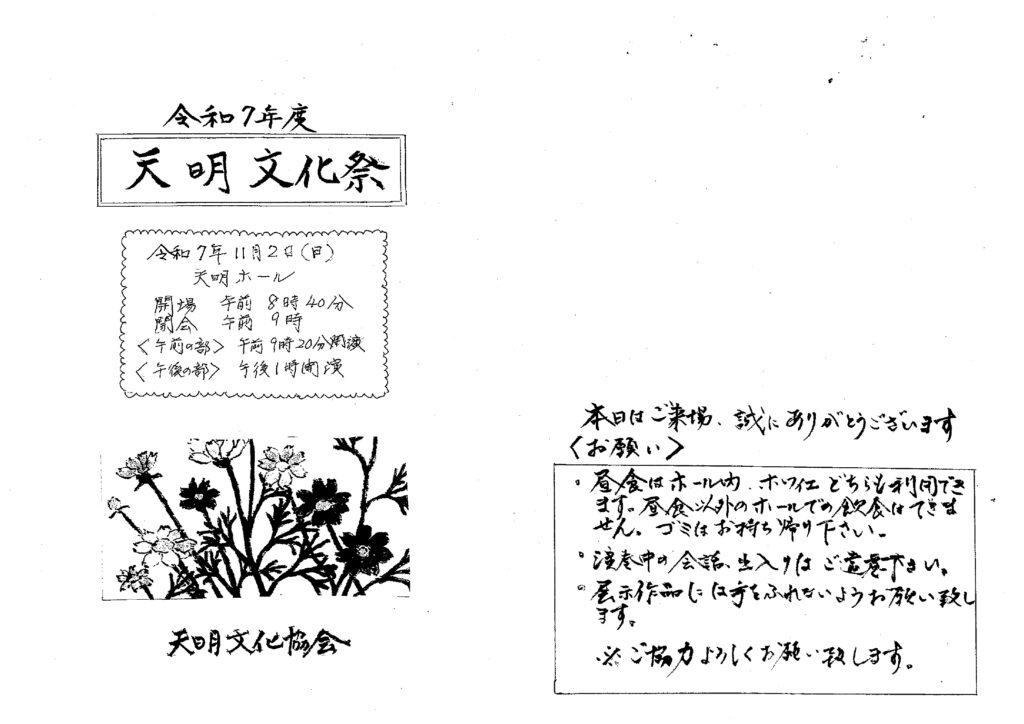 令和7年度
天明文化祭
令和7年11月2日(日)
天明ホール
開場 午前 8時40分
開会 午前 9時
<午前の部> 午前9時20分開演
<午後の部> 午後1時開演
天明文化協会
本日はご来場、誠にありがとうございます
<お願い>
・昼食はホール内、ホワイエどちらも利用でき
ます。昼食以外のホールでの飲食はできま
せん。ゴミはお持ち帰り下さい。
・演奏中の会話、出入りはご遠慮下さい。
・展示作品には手をふれないようお願い致し
ます。
※ご協力よろしくお願い致します。